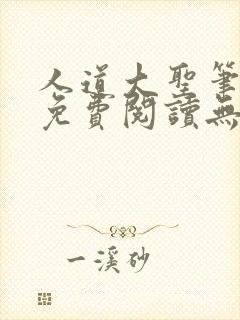 人道大聖筆
免費閱讀無
一溪砂